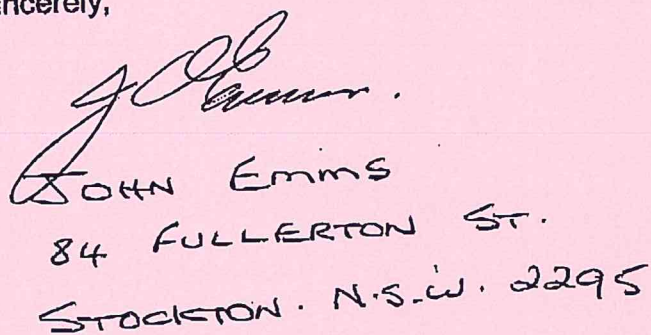 ncerely,
JOHN Emms
84 FULLERTON ST.
STOCKTON. N.S.W. 2295